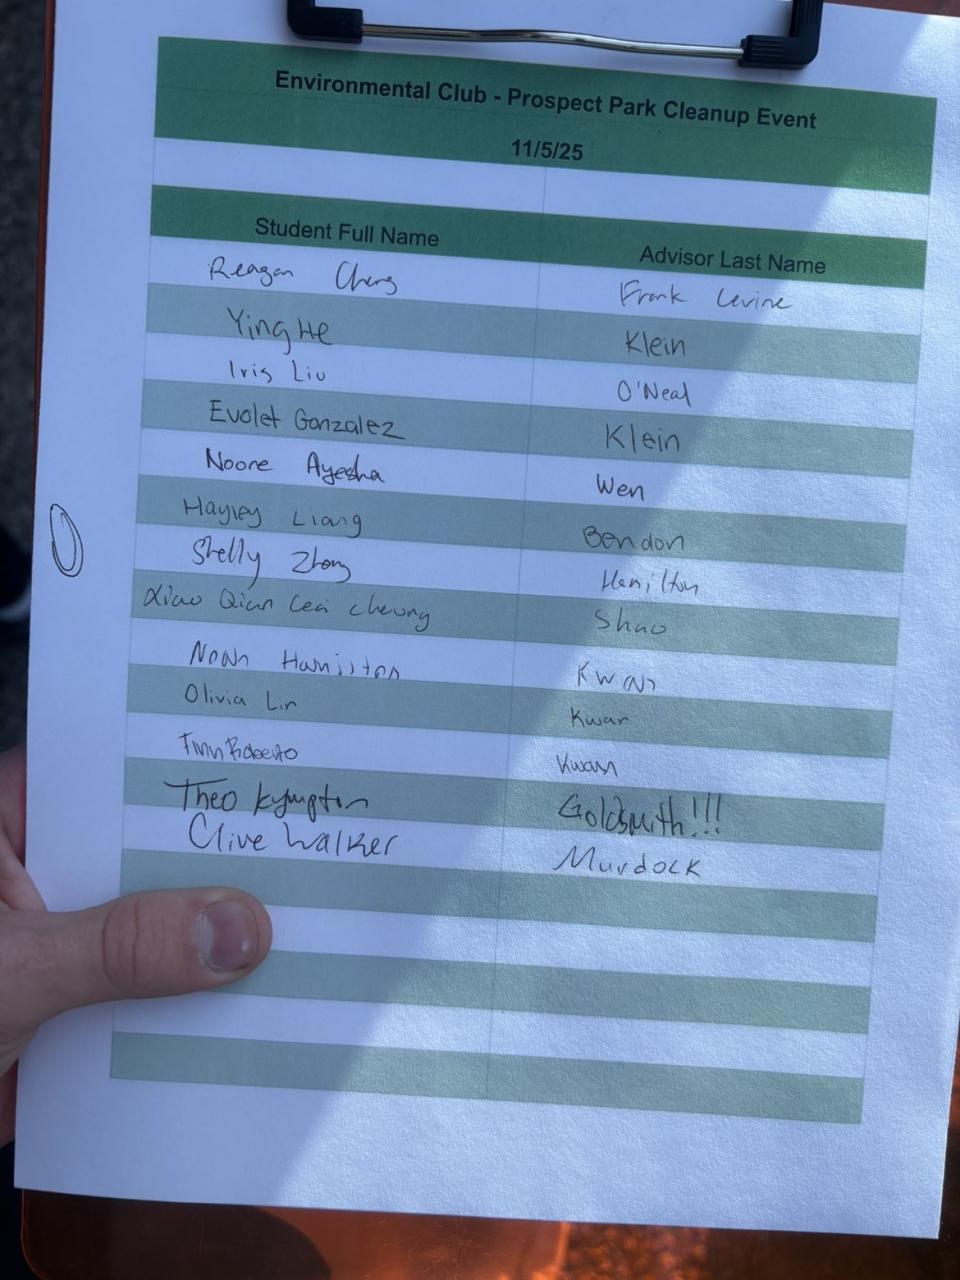 Environmental Club - Prospect Park Cleanup Event
11/5/25
Student Full Name Advisor Last Name
Reagan Frank Levine
Ying He Klein
Iris Liu O'Neal
Evolet Gonzalez Klein
Noore Ayesha Wen
Hayley Liang Bendon
Shelly Zhong Hamilton
Xiao Qian Cheung Shao
Noah Hamilton Kwan
Olivia Lin Kwan
Roberto Kwan
Theo Kympton Goldsmith!!!
Clive Walker Murdock